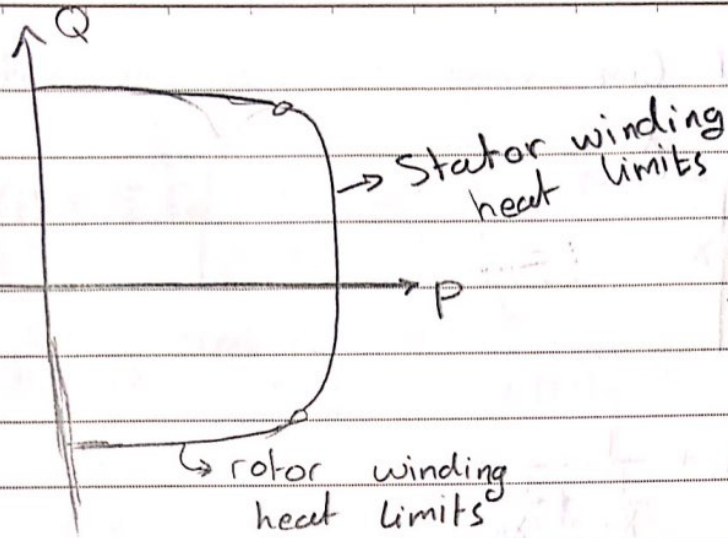 Q
Stator winding
heat limits
P
rotor winding
heat limits